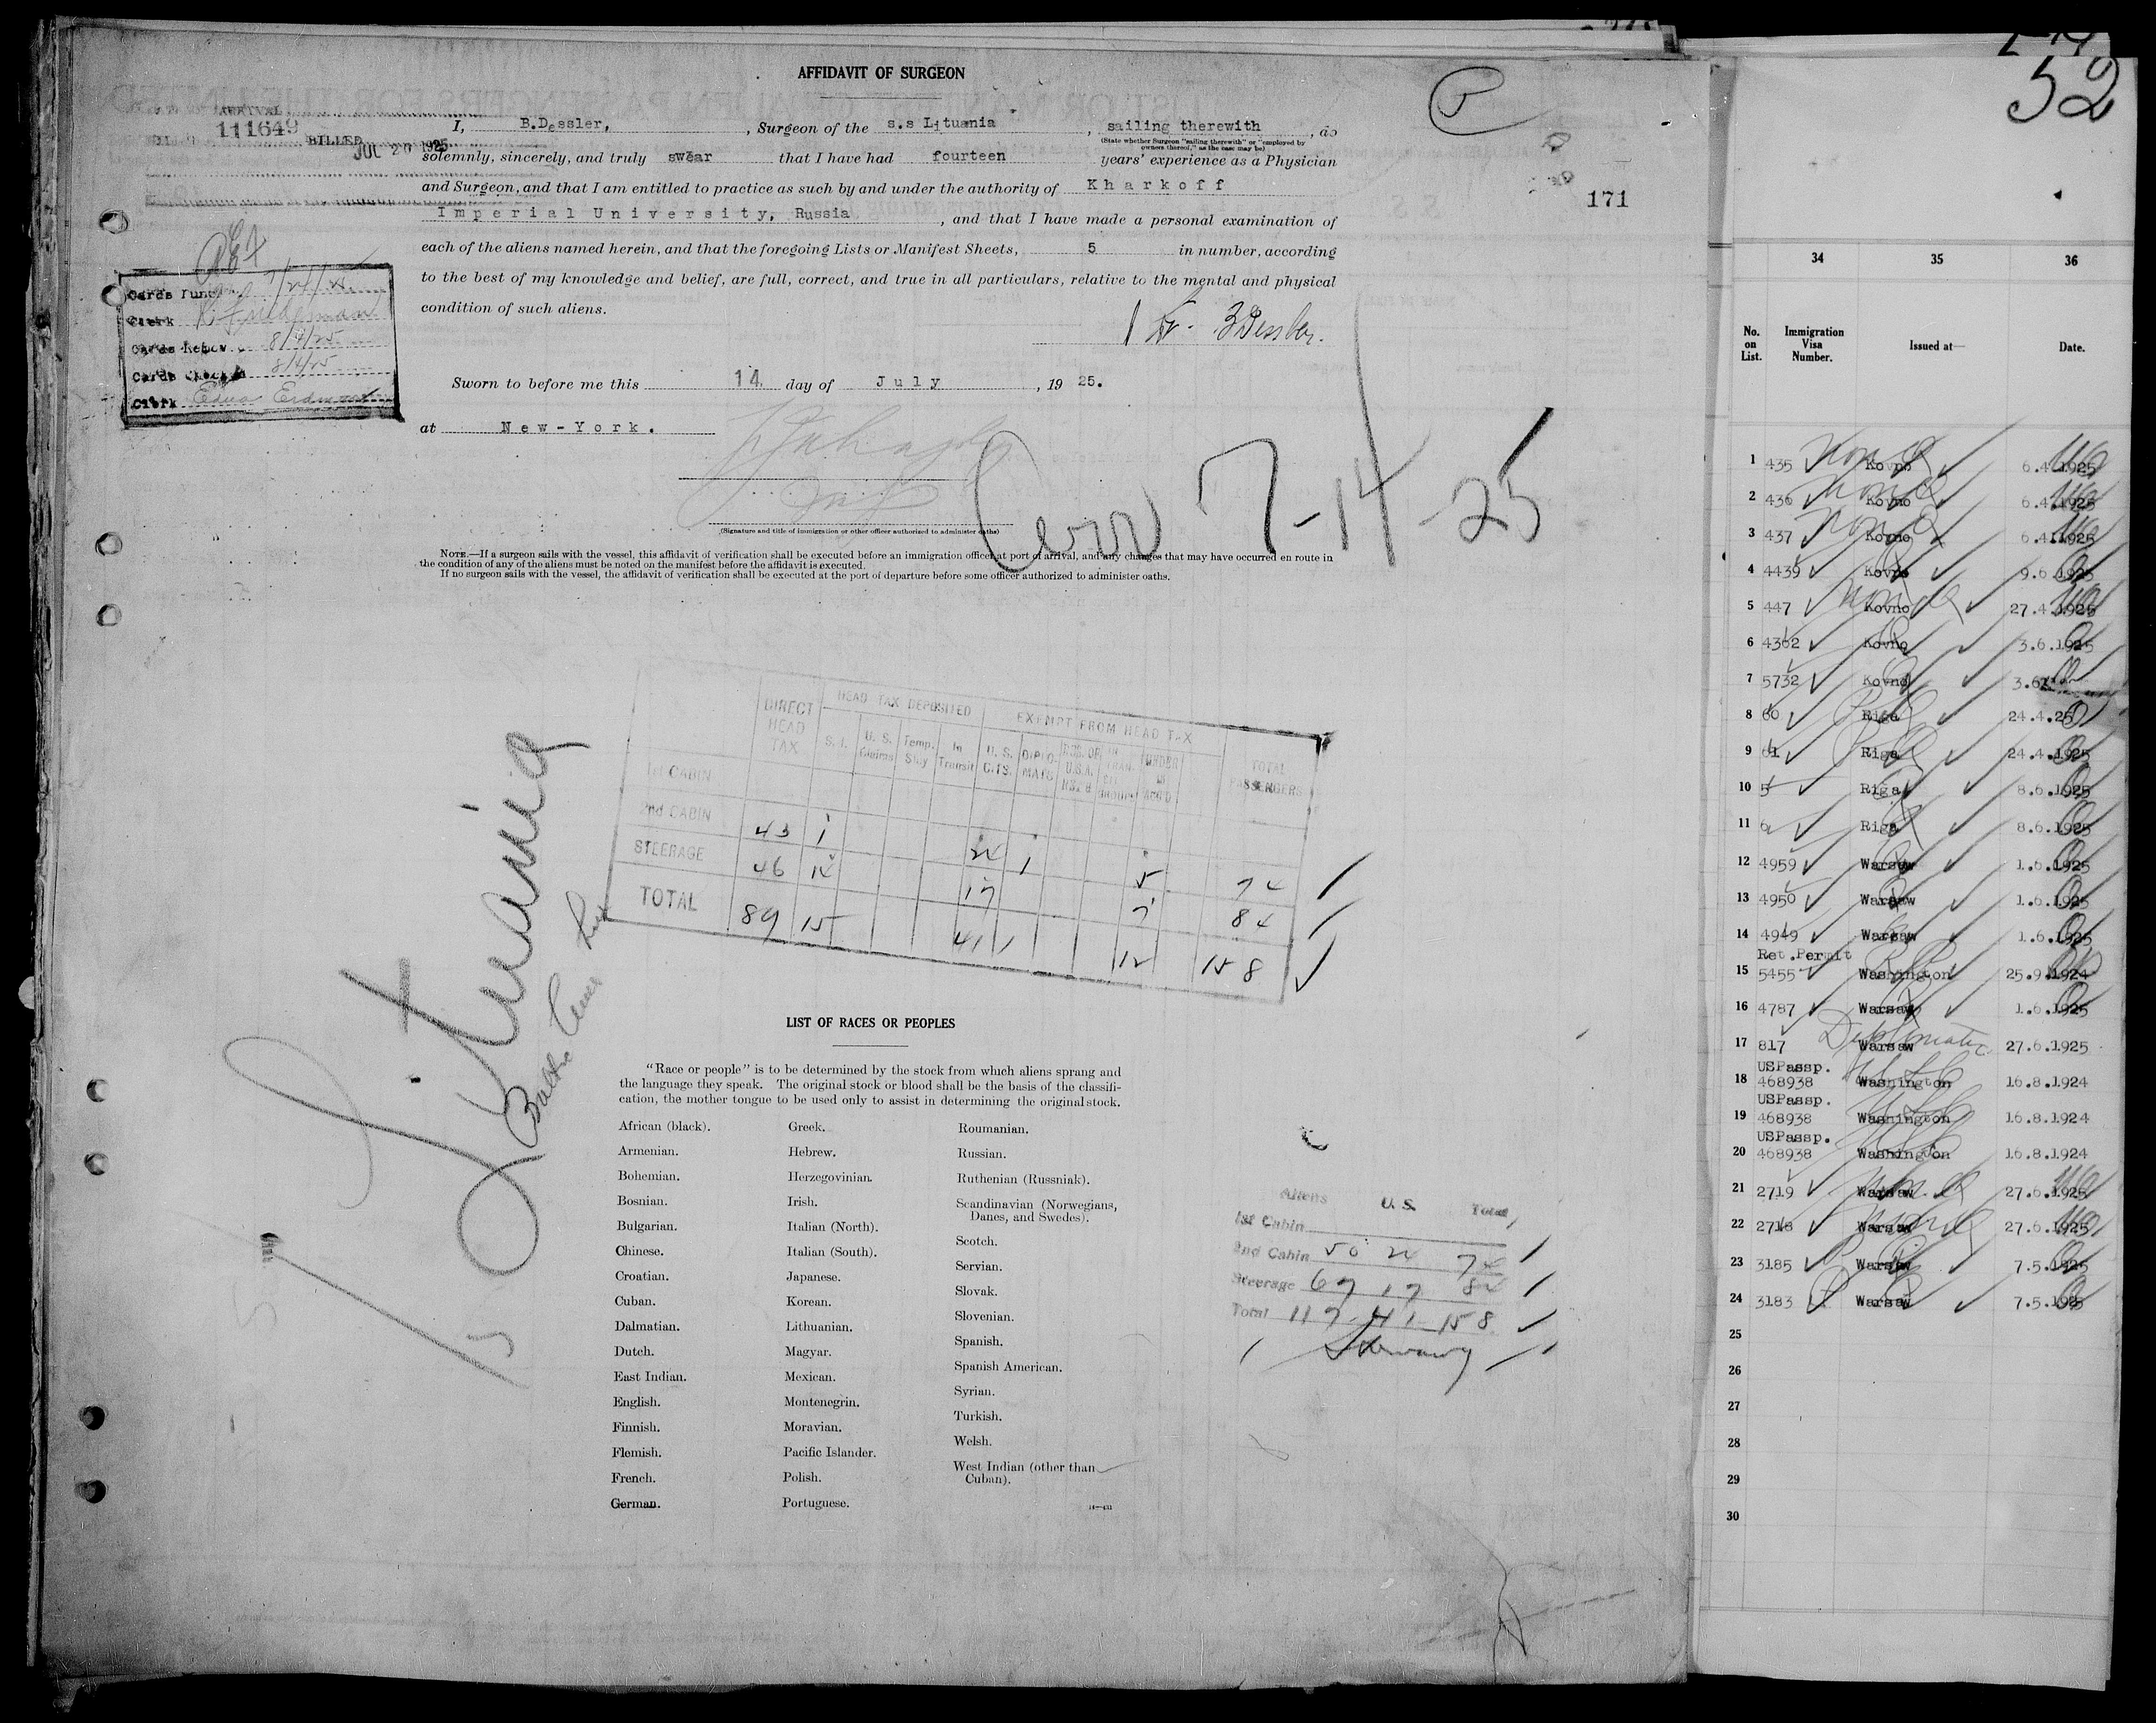 AFFIDAVIT OF SURGEON
ARRIVAL
111649
BILLED
JUL 20 1925
I, B.Dessler, , Surgeon of the s.s Lituania , sailing therewith , do
(State whether Surgeon "sailing therewith" or "employed by
owners thereof," as the case may be)
solemnly, sincerely, and truly swear that I have had fourteen years' experience as a Physician
and Surgeon, and that I am entitled to practice as such by and under the authority of Kharkoff
Imperial University, Russia , and that I have made a personal examination of
each of the aliens named herein, and that the foregoing Lists or Manifest Sheets, 5 in number, according
to the best of my knowledge and belief, are full, correct, and true in all particulars, relative to the mental and physical
condition of such aliens.
171
Clerk
8/4/25
8/4/25
Clerk Edna
Dr. B Dessler.
Sworn to before me this 14 day of July , 19 25.
at New-York.
7-14-25
(Signature and title of immigration or other officer authorized to administer oaths)
NOTE.—If a surgeon sails with the vessel, this affidavit of verification shall be executed before an immigration officer at port of arrival, and any changes that may have occurred en route in
the condition of any of the aliens must be noted on the manifest before the affidavit is executed.
If no surgeon sails with the vessel, the affidavit of verification shall be executed at the port of departure before some officer authorized to administer oaths.
Lituania
DIRECT HEAD TAX
HEAD TAX DEPOSITED
EXEMPT FROM HEAD TAX
S. I.
U. S. Claims
Temp. Stay
In Transit
U. S. CITS.
DIPLOMATS
UNDER 16 ACC'D
TOTAL PASSENGERS
1st CABIN
2nd CABIN 43 1 24 1 5 74
STEERAGE 46 14 17 7 84
TOTAL 89 15 41 1 12 158
LIST OF RACES OR PEOPLES
"Race or people" is to be determined by the stock from which aliens sprang and
the language they speak. The original stock or blood shall be the basis of the classifi-
cation, the mother tongue to be used only to assist in determining the original stock.
African (black).
Armenian.
Bohemian.
Bosnian.
Bulgarian.
Chinese.
Croatian.
Cuban.
Dalmatian.
Dutch.
East Indian.
English.
Finnish.
Flemish.
French.
German.
Greek.
Hebrew.
Herzegovinian.
Irish.
Italian (North).
Italian (South).
Japanese.
Korean.
Lithuanian.
Magyar.
Mexican.
Montenegrin.
Moravian.
Pacific Islander.
Polish.
Portuguese.
Roumanian.
Russian.
Ruthenian (Russniak).
Scandinavian (Norwegians,
Danes, and Swedes).
Scotch.
Servian.
Slovak.
Slovenian.
Spanish.
Spanish American.
Syrian.
Turkish.
Welsh.
West Indian (other than
Cuban).
Aliens U. S. Total
1st Cabin
2nd Cabin 50 24 74
Steerage 67 17 84
Total 117 41 158
52
34 35 36
No. on List. Immigration Visa Number. Issued at— Date.
1 435 Kovno 6.4.1925
2 436 Kovno 6.4.1925
3 437 Kovno 6.4.1925
4 4439 Kovno 9.6.1925
5 447 Kovno 27.4.1925
6 4362 Kovno 3.6.1925
7 5732 Kovno 3.6
8 60 Riga 24.4.25
9 61 Riga 24.4.1925
10 5 Riga 8.6.1925
11 6 Riga 8.6.1925
12 4959 Warsaw 1.6.1925
13 4950 Warsaw 1.6.1925
14 4949 Warsaw 1.6.1925
Ret.Permit
15 5455 Washington 25.9.1924
16 4787 Warsaw 1.6.1925
17 817 Warsaw Diplomatic 27.6.1925
USPassp.
18 468938 Washington 16.8.1924
USPassp.
19 468938 Washington 16.8.1924
USPassp.
20 468938 Washington 16.8.1924
21 2719 Warsaw 27.6.1925
22 2718 Warsaw 27.6.1925
23 3185 Warsaw 7.5.1925
24 3183 Warsaw 7.5.192
25
26
27
28
29
30